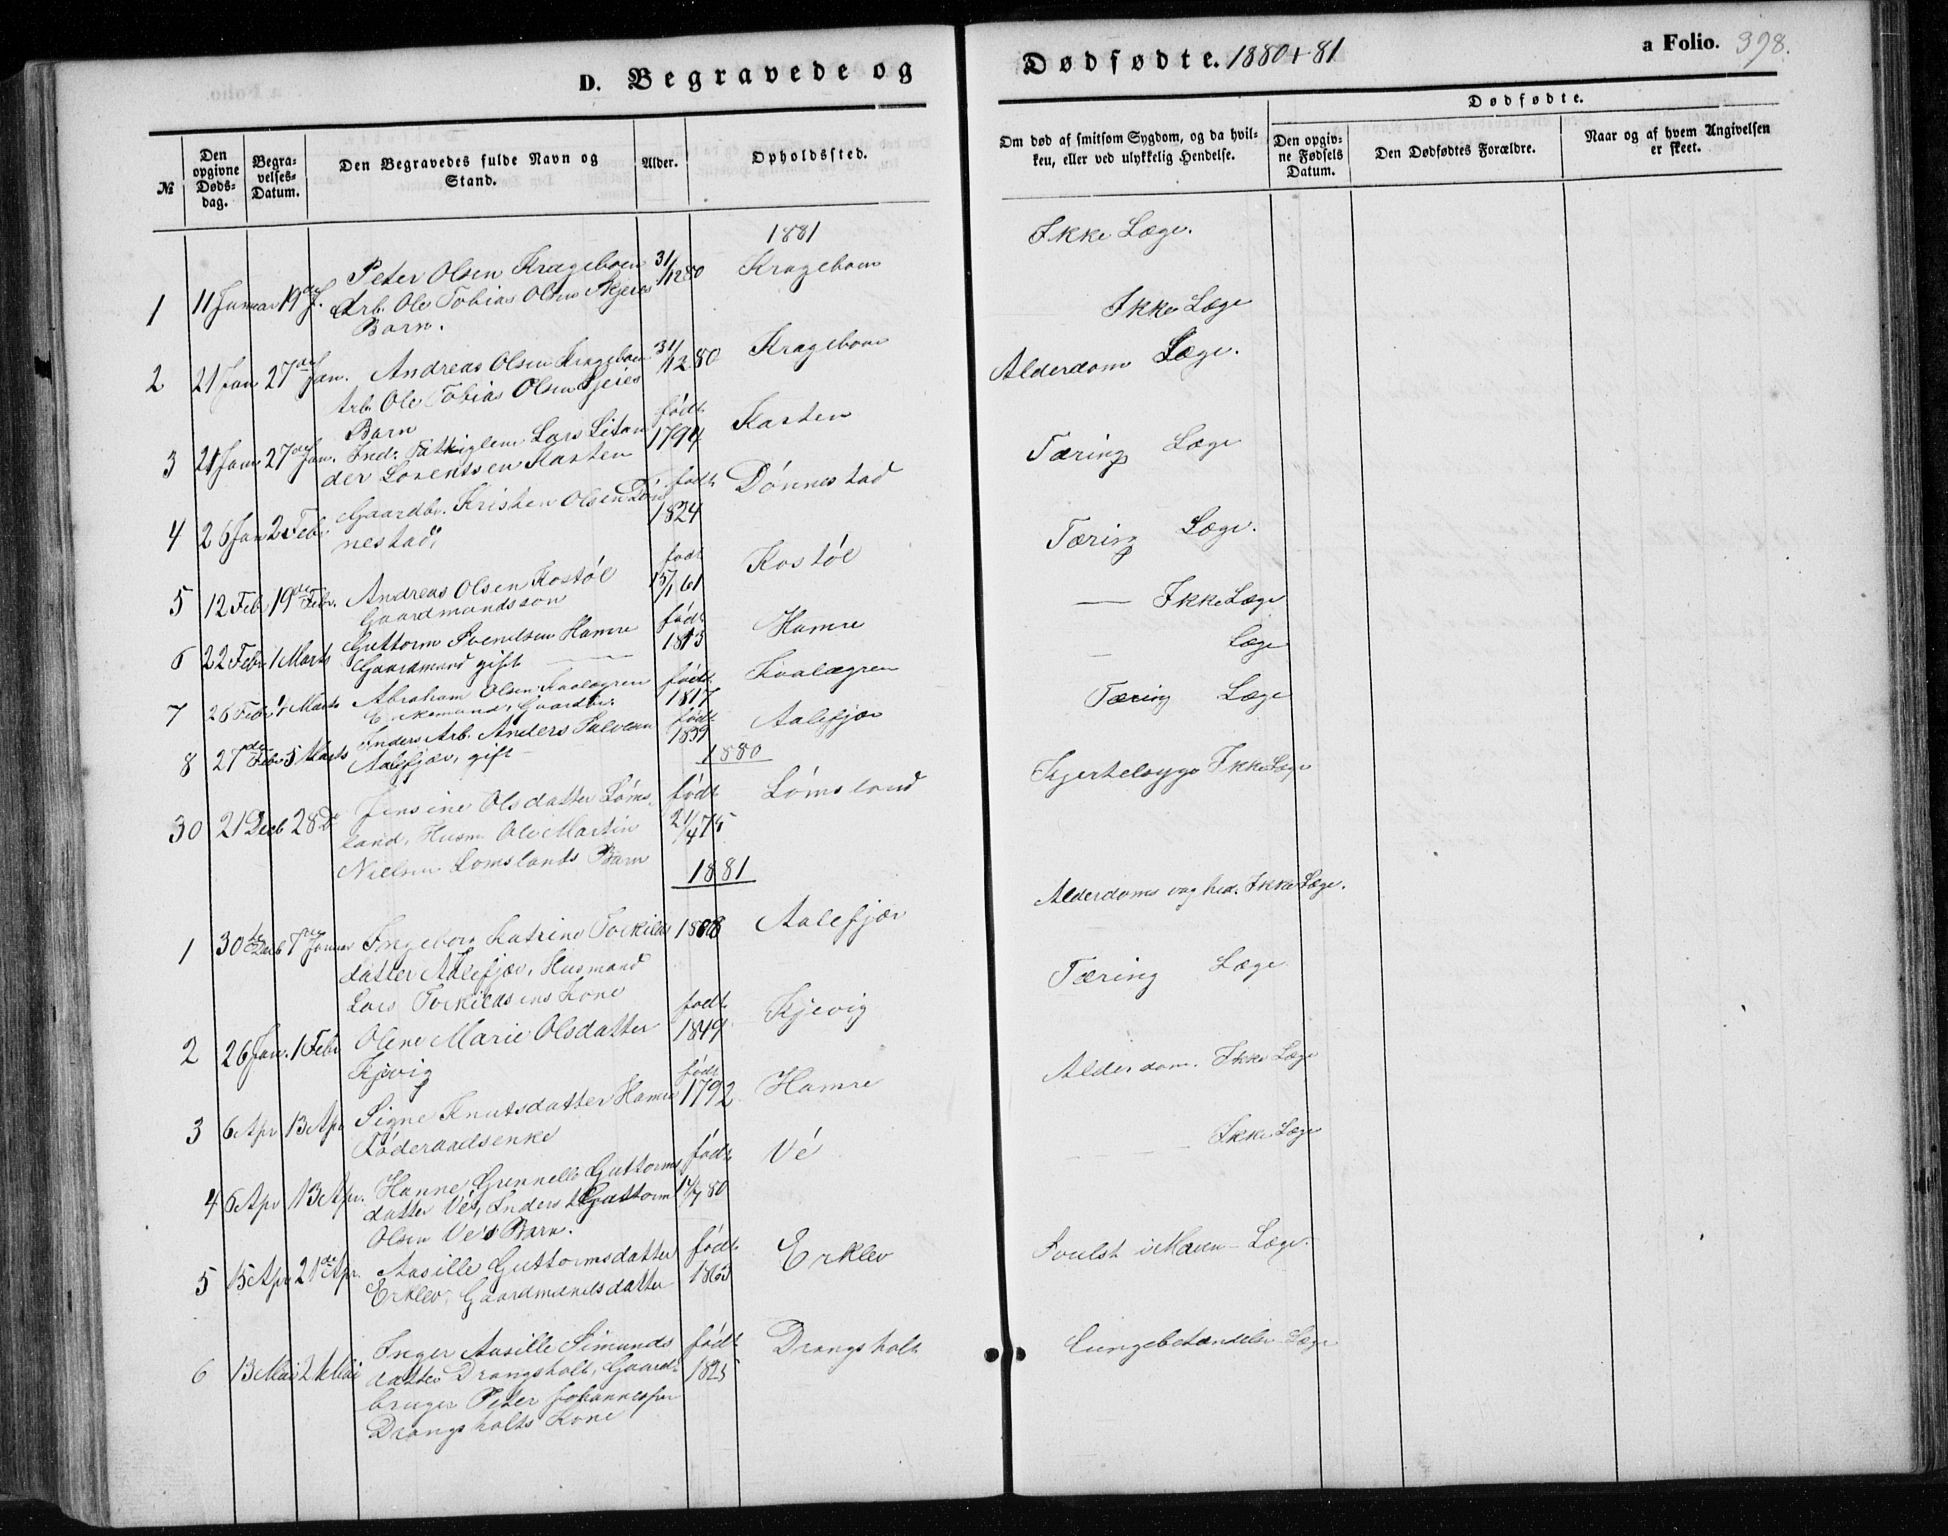 D. Begravede og
Dødfødte. 1880 + 81
a Folio. 398.
№
Den opgivne Døds-dag.
Begra-velses-Datum.
Den Begravedes fulde Navn og Stand.
Alder.
Opholdssted.
Om død af smitsom Sygdom, og da hvil-ken, eller ved ulykkelig Hendelse.
Dødfødte.
Den opgiv-ne Fødsels Datum.
Den Dødfødtes Forældre.
Naar og af hvem Angivelsen er skeet.
1881
1 11 Januar 19de J. Peter Olsen Krageboen 31/12 80 Krageboen Ikke Læge.
Arb. Ole Tobias Olsen Skjeies
Barn.
2 21 Jan 27de Jan. Andreas Olsen Krageboen 31/12 80 Krageboen Ikke Læge
Arb. Ole Tobias Olsen Skjeies
Barn
3 21 Jan 27de Jan. Ind: Fattiglem Lars Litan født 1794 Kasten Alderdom Læge.
der Lorentsen Kasten
4 26 Jan 2 Febr Gaardbr. Kristen Olsen Døn født 1824 Dønnestad Tæring Læge
nestad,
5 12 Feb 19de Febr. Andreas Olsen Kostøl født 15/1 61 Kostøl Tæring Læge.
Gaardmandssøn
6 22 Febr 1 Marts Guttorm Svendsen Hamre født 1813 Hamre — Ikke Læge
Gaardmand gift
7 26 Febr 4 Marts Abraham Olsen Kvalegren født 1817 Kvalegren — Læge
Enkemand, Gaardbr.
8 27de Febr 5 Marts Inders Arb. Anders Salvesen født 1839 Aalefjær Tæring Læge
Aalefjær, gift
1880
30 21 Decb 28 D Jensine Olsdatter Løms- født 21/4 75 Lømsland Kjertelsyge Ikke Læge
land, Husm. Ole Martin
Nielsen Lømslands Barn
1881
1 30te Decb 7de Januar Ingeborg Katrine Torkilds 1808 Aalefjær Alderdoms svaghed. Ikke Læge.
datter Aalefjær, Husmand
Lars Torkildsens Kone
2 26 Jan. 1 Febr Olene Marie Olsdatter født 1849 Kjevig Tæring Læge
Kjevig
3 6 Apr 13 Apr Signe Knutsdatter Hamre født 1792 Hamre Alderdom. Ikke Læge
Føderaadsenke
4 6 Apr 13 Apr. Hanne Grennelle Guttorms født 17/7 80 Vé Ikke Læge
datter Vé, Inders Guttorm
Olsen Ve's Barn.
5 15 Apr 21de Apr. Aasille Guttormsdatter født 1863 Erklev Svulst i Maven — Læge.
Erklev, Gaardmandsdatter
6 13 Mai 21 Mai Inger Aasille Simunds født 1825 Drangsholt Lungebetændelse Læge
datter Drangsholt, Gaard-
bruger Peter Johannessen
Drangsholts Kone